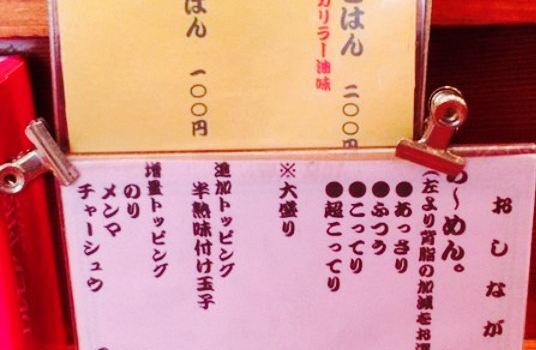 ごはん 二〇〇円
ガリラー油味
はん 一〇〇円
おしなが
め～めん。
(左より背脂の加減をお
●あっさり
●ふつう
●こってり
●超こってり
※大盛り
追加トッピング
半熟味付け玉子
増量トッピング
のり
メンマ
チャーシュウ